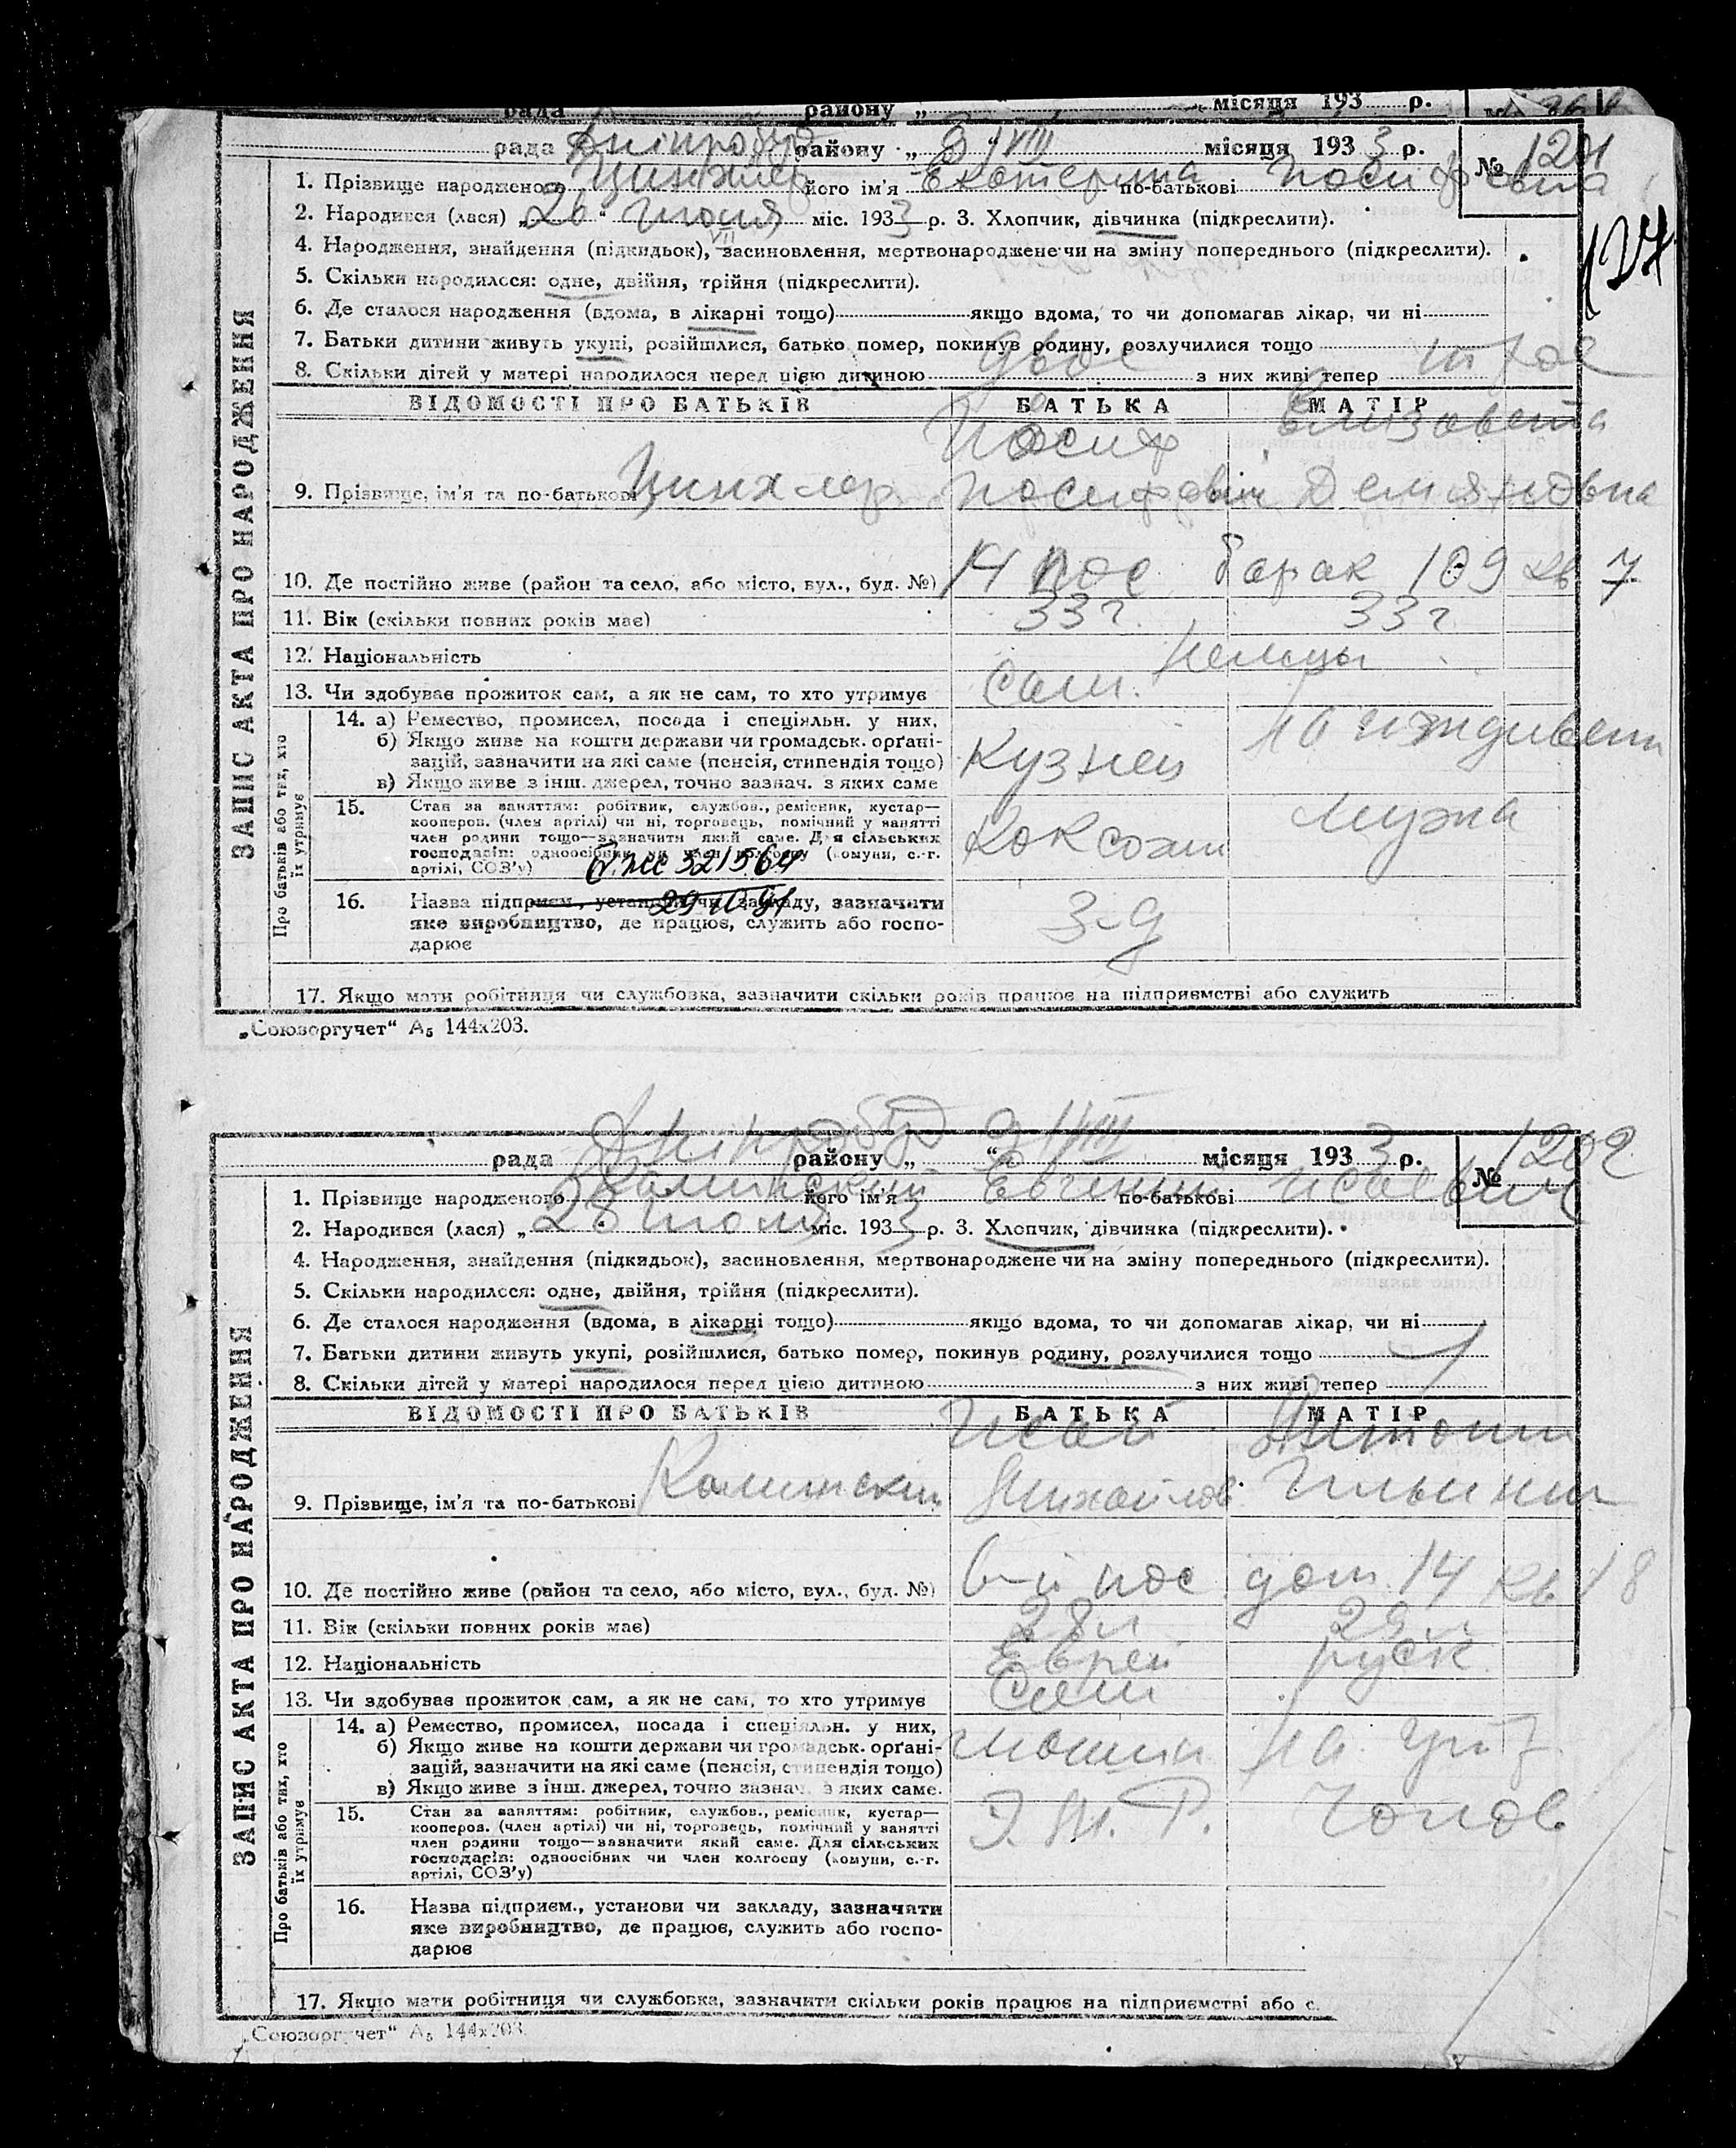 рада району „ “ місяця 193 р.
рада Дніпробуд району „ 3 “ VIII місяця 193 3 р. № 1201
1. Прізвище народженого Цинхлер його ім'я Екатерина по-батькові Иосифовна
2. Народився (лася) „ 26 “ июля міс. 193 3 р. 3. Хлопчик, дівчинка (підкреслити).
VII
4. Народження, знайдення (підкидьок), засиновлення, мертвонароджене чи на зміну попереднього (підкреслити).
5. Скільки народилося: одне, двійня, трійня (підкреслити).
6. Де сталося народження (вдома, в лікарні тощо) якщо вдома, то чи допомагав лікар, чи ні
7. Батьки дитини живуть укупі, розійшлися, батько помер, покинув родину, розлучилися тощо
8. Скільки дітей у матері народилося перед цією дитиною двое з них живі тепер трое
ВІДОМОСТІ ПРО БАТЬКІВ БАТЬКА МАТІР
Иосиф Елизовета
9. Прізвище, ім'я та по-батькові Цинхлер Иосифович Демяновна
10. Де постійно живе (район та село, або місто, вул., буд. №) 14 пос барак 109 кв 7
11. Вік (скільки повних років має) 33 г. 33 г
12. Національність Немцы
13. Чи здобуває прожиток сам, а як не сам, то хто утримує Сам.
14. а) Ремество, промисел, посада і спеціяльн. у них,
б) Якщо живе на кошти держави чи громадськ. орґані-
зацій, зазначити на які саме (пенсія, стипендія тощо)
в) Якщо живе з інш. джерел, точно зазнач. з яких саме
Кузнец На иждивении
15. Стан за заняттям: робітник, службов., ремісник, кустар—
кооперов. (член артілі) чи ні, торговець, помічний у занятті
член родини тощо—зазначити який саме. Для сільських
господарів: одноосібник чи член колгоспу (комуни, с.-г.
артілі, СОЗ'у)
Коксохим мужа
321564
16. Назва підприєм., установи чи закладу, зазначити
яке виробництво, де працює, служить або госпо-
дарює
З-д
17. Якщо мати робітниця чи службовка, зазначити скільки років працює на підприємстві або служить
ЗАПИС АКТА ПРО НАРОДЖЕННЯ
Про батьків або тих, хто
їх утримує
„Союзоргучет“ А5 144х203.
рада Дніпробуд району „ 3 “ VIII місяця 193 3 р. № 1202
1. Прізвище народженого Каминский його ім'я Евгений по-батькові Исаевич
2. Народився (лася) „ 28 июля міс. 193 3 р. 3. Хлопчик, дівчинка (підкреслити).
4. Народження, знайдення (підкидьок), засиновлення, мертвонароджене чи на зміну попереднього (підкреслити).
5. Скільки народилося: одне, двійня, трійня (підкреслити).
6. Де сталося народження (вдома, в лікарні тощо) якщо вдома, то чи допомагав лікар, чи ні
7. Батьки дитини живуть укупі, розійшлися, батько помер, покинув родину, розлучилися тощо
8. Скільки дітей у матері народилося перед цією дитиною з них живі тепер
ВІДОМОСТІ ПРО БАТЬКІВ БАТЬКА МАТІР
Исай Антонин
9. Прізвище, ім'я та по-батькові Каминский Михайлов Ильинин
10. Де постійно живе (район та село, або місто, вул., буд. №) 6-й пос дом 14 кв 18
11. Вік (скільки повних років має) 28 л 29 л
12. Національність Еврей руск
13. Чи здобуває прожиток сам, а як не сам, то хто утримує Сам
14. а) Ремество, промисел, посада і спеціяльн. у них,
б) Якщо живе на кошти держави чи громадськ. орґані-
зацій, зазначити на які саме (пенсія, стипендія тощо)
в) Якщо живе з інш. джерел, точно зазнач. з яких саме.
машин на утр
15. Стан за заняттям: робітник, службов., ремісник, кустар—
кооперов. (член артілі) чи ні, торговець, помічний у занятті
член родини тощо—зазначити який саме. Для сільських
господарів: одноосібник чи член колгоспу (комуни, с.-г.
артілі, СОЗ'у)
Чолов.
16. Назва підприєм., установи чи закладу, зазначити
яке виробництво, де працює, служить або госпо-
дарює
17. Якщо мати робітниця чи службовка, зазначити скільки років працює на підприємстві або с.
ЗАПИС АКТА ПРО НАРОДЖЕННЯ
Про батьків або тих, хто
їх утримує
„Союзоргучет“ А5 144х203.